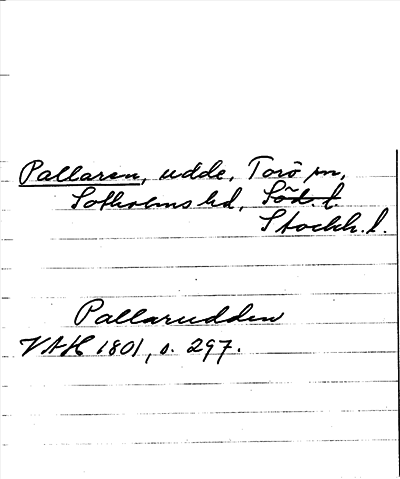 Pallaren, udde, Torö sn,
Sotholms hd, Söd. l.
Stockh. l.
Pallarudden
VAH 1801, s. 297.